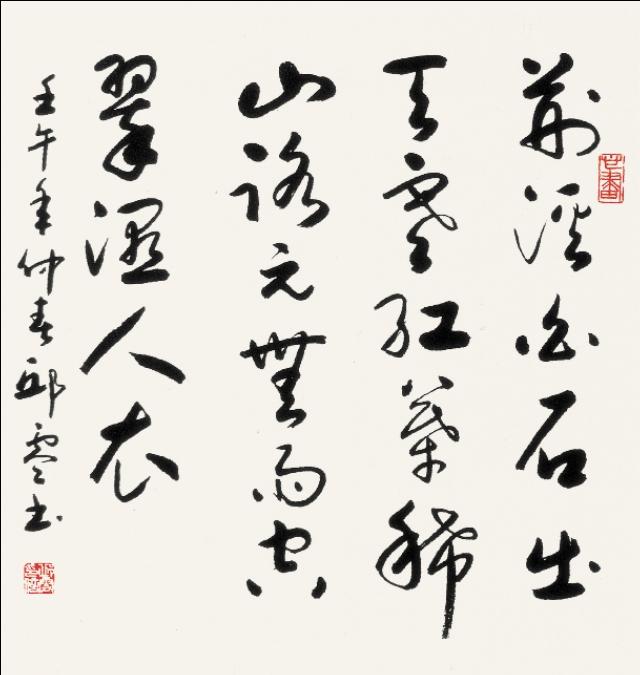 荆溪白石出
天寒红叶稀
山路元無雨空
翠濕人衣
壬午年仲春邱零书